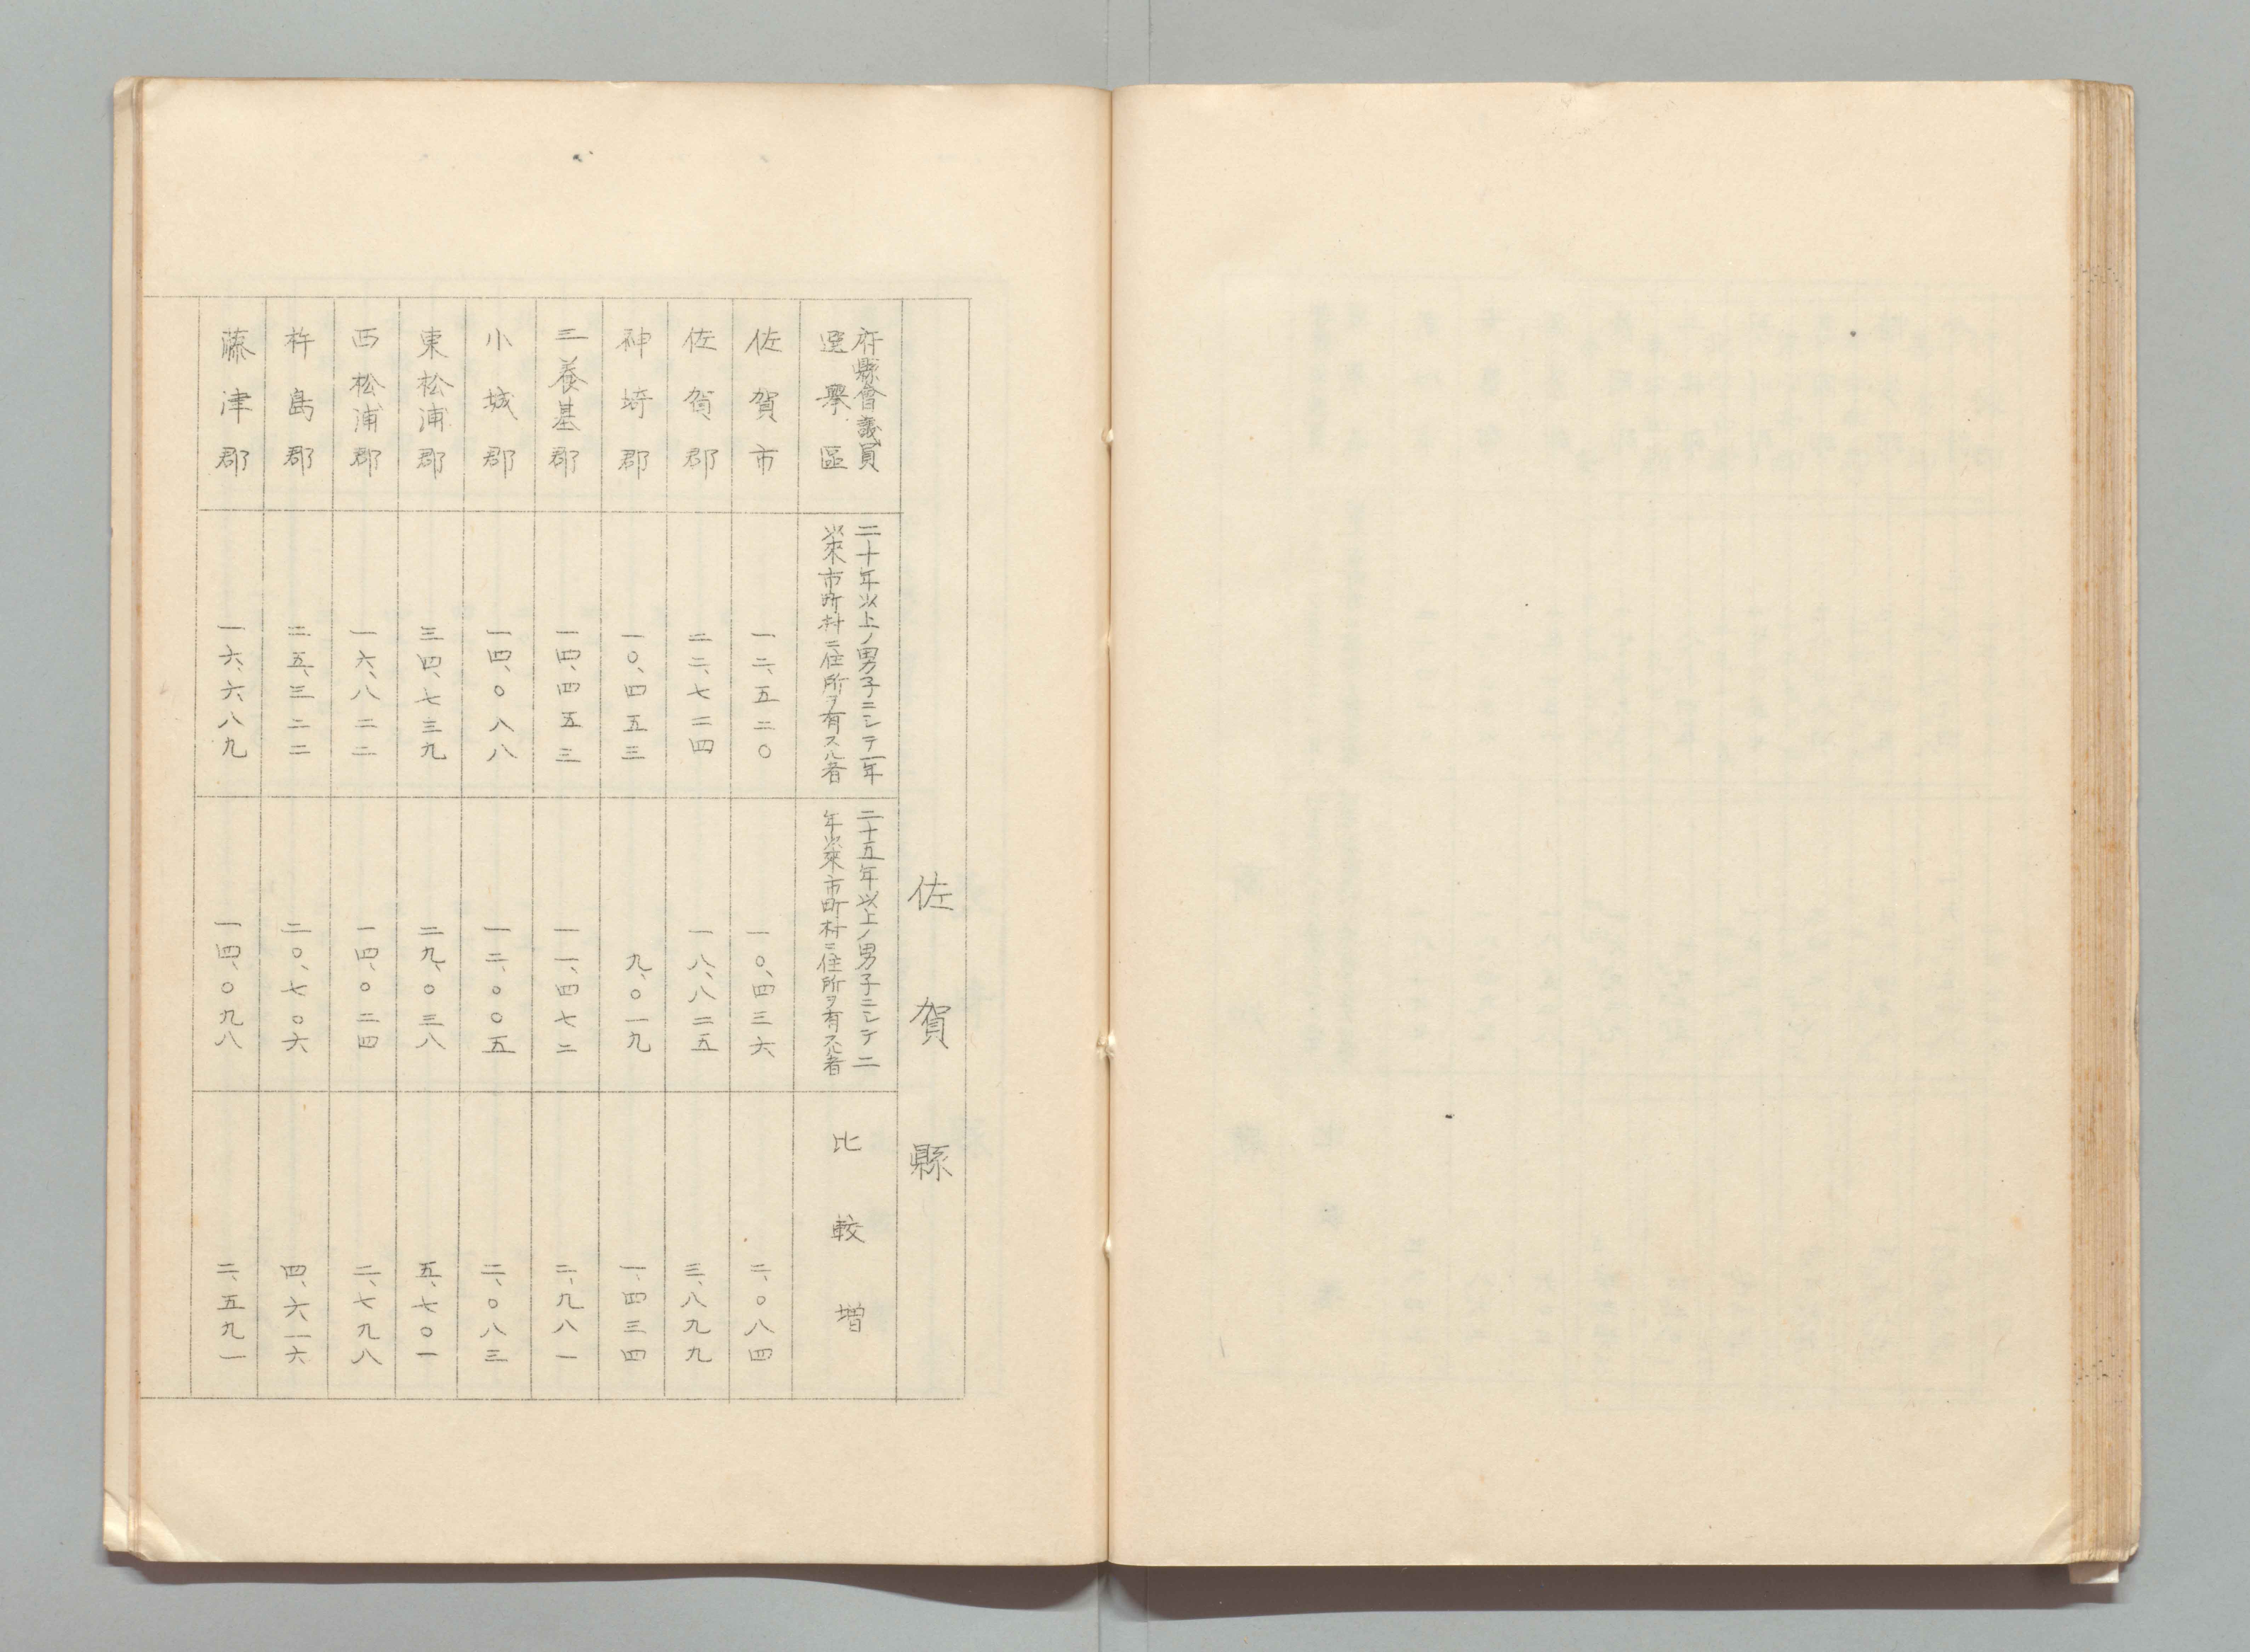 佐賀縣
府縣會議員
選擧區
二十年以上ノ男子ニシテ一年
以來市町村ニ住所ヲ有スル者
二十五年以上ノ男子ニシテ二
年以來市町村ニ住所ヲ有スル者
比較增
佐賀市 一二、五二〇 一〇、四三六 二、〇八四
佐賀郡 二二、七二四 一八、八二五 三、八九九
神埼郡 一〇、四五三 九、〇一九 一、四三四
三養基郡 一四、四五三 一一、四七二 二、九八一
小城郡 一四、〇八八 一二、〇〇五 二、〇八三
東松浦郡 三四、七三九 二九、〇三八 五、七〇一
西松浦郡 一六、八二二 一四、〇二四 二、七九八
杵島郡 二五、三二二 二〇、七〇六 四、六一六
藤津郡 一六、六八九 一四、〇九八 二、五九一